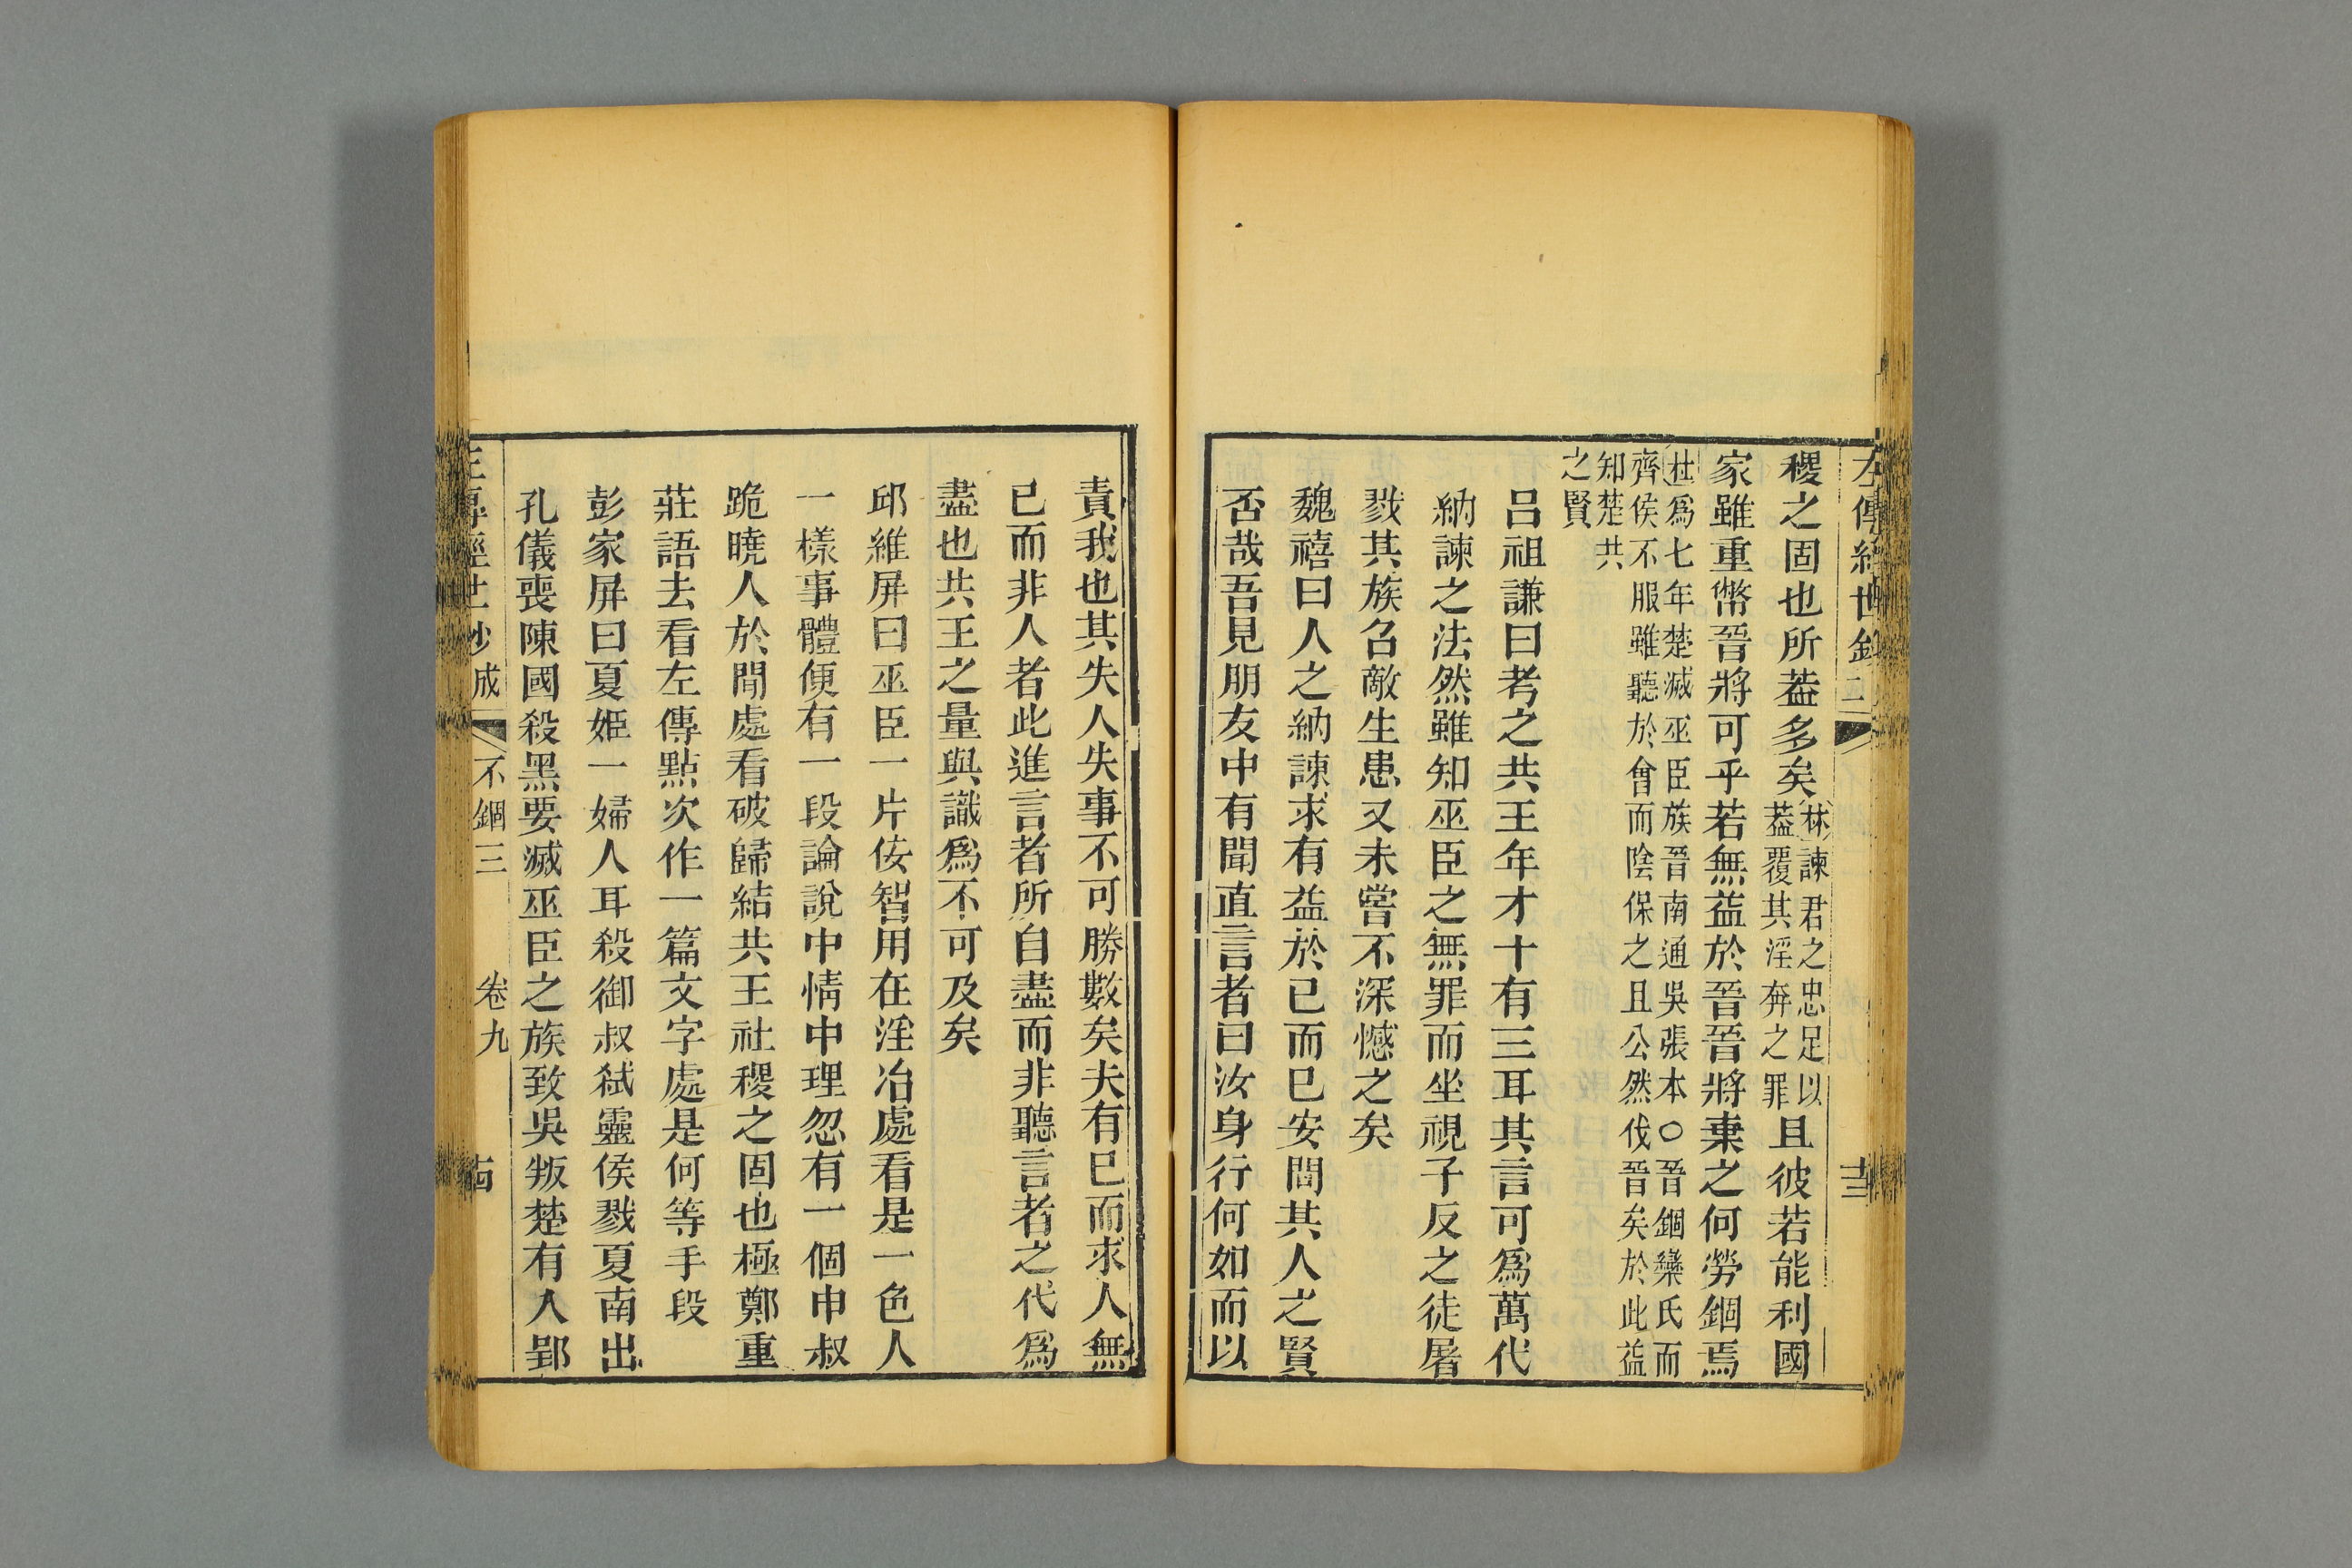 左傳經世鈔二
稷之固也所葢多矣
林諫君之忠足以
葢覆其淫奔之罪
且彼若能利國
家雖重幣晉將可乎若無益於晉晉將棄之何勞錮焉
杜爲七年楚滅巫臣族晉南通吳張本○晉錮欒氏而
齊侯不服雖聽於會而陰保之且公然伐晉矣於此益
知楚共
之賢
呂祖謙曰考之共王年才十有三耳其言可爲萬代
納諫之法然雖知巫臣之無罪而坐視子反之徒屠
戮其族召敵生患又未嘗不深憾之矣
魏禧曰人之納諫求有益於已而已安問其人之賢
否哉吾見朋友中有聞直言者曰汝身行何如而以
責我也其失人失事不可勝數矣夫有巳而求人無
已而非人者此進言者所自盡而非聽言者之代爲
盡也共王之量與識爲不可及矣
邱維屏曰巫臣一片佞智用在淫冶處看是一色人
一樣事體便有一段論說中情中理忽有一個申叔
跪曉人於間處看破歸結共王社稷之固也極鄭重
莊語去看左傳點次作一篇文字處是何等手段
彭家屏曰夏姬一婦人耳殺御叔弑靈侯戮夏南出
孔儀喪陳國殺黑要滅巫臣之族致吳叛楚有人郢
左傳經世鈔 成
不錮三
卷九